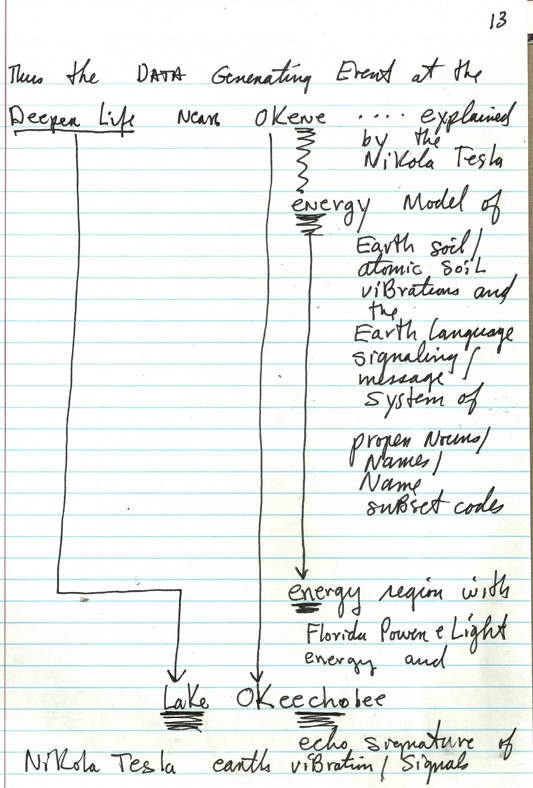 13
Thus the DATA Generating Event at the
Deeper Life Near OKeene .... explained
by the
Nikola Tesla
energy Model of
Earth soil/
atomic soil
viBrations and
the
Earth Language
signaling/
message
system of
proper Nouns/
Names/
Name
suBset codes
energy region with
Florida Power e Light
energy and
Lake OKeechobee
echo signature of
Nikola Tesla earth viBration/Signals